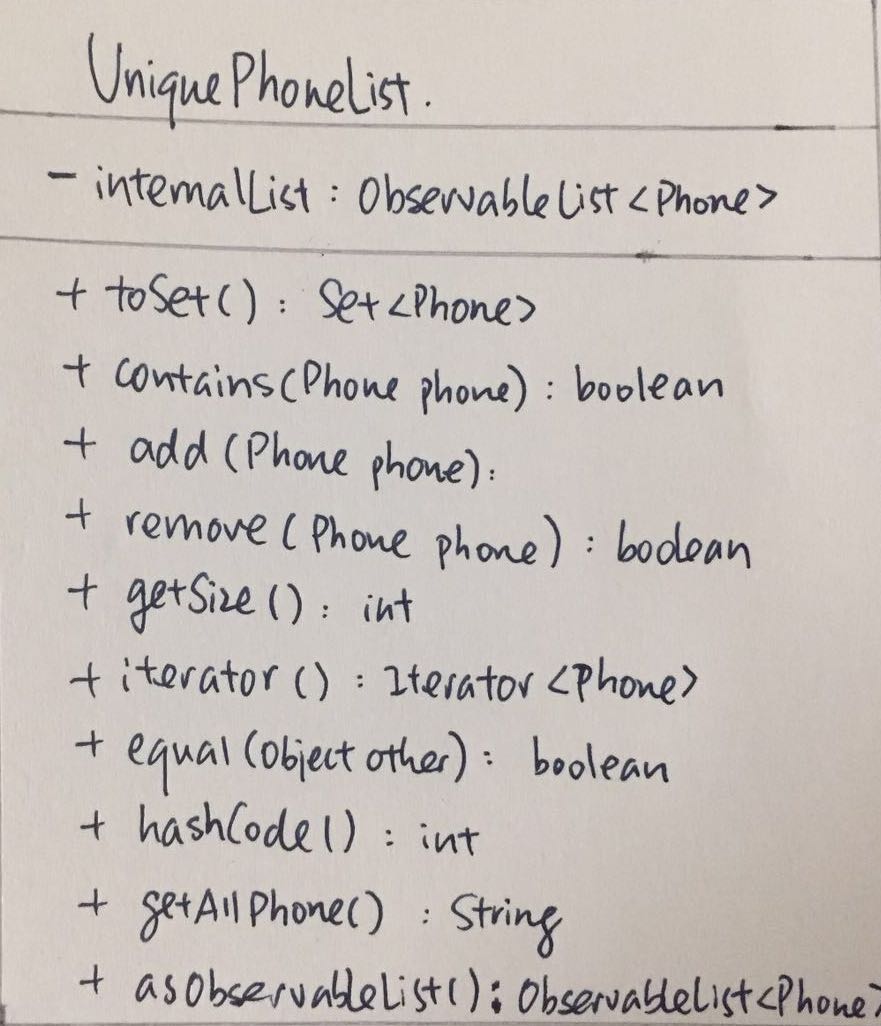 UniquePhoneList.
- internalList : ObservableList <Phone>
+ toSet() : Set <Phone>
+ contains(Phone phone) : boolean
+ add (Phone phone):
+ remove (Phone phone) : boolean
+ getSize() : int
+ iterator () : Iterator <Phone>
+ equal (Object other) : boolean
+ hashCode() : int
+ getAllPhone() : String
+ asObservableList() : ObservableList<Phone>